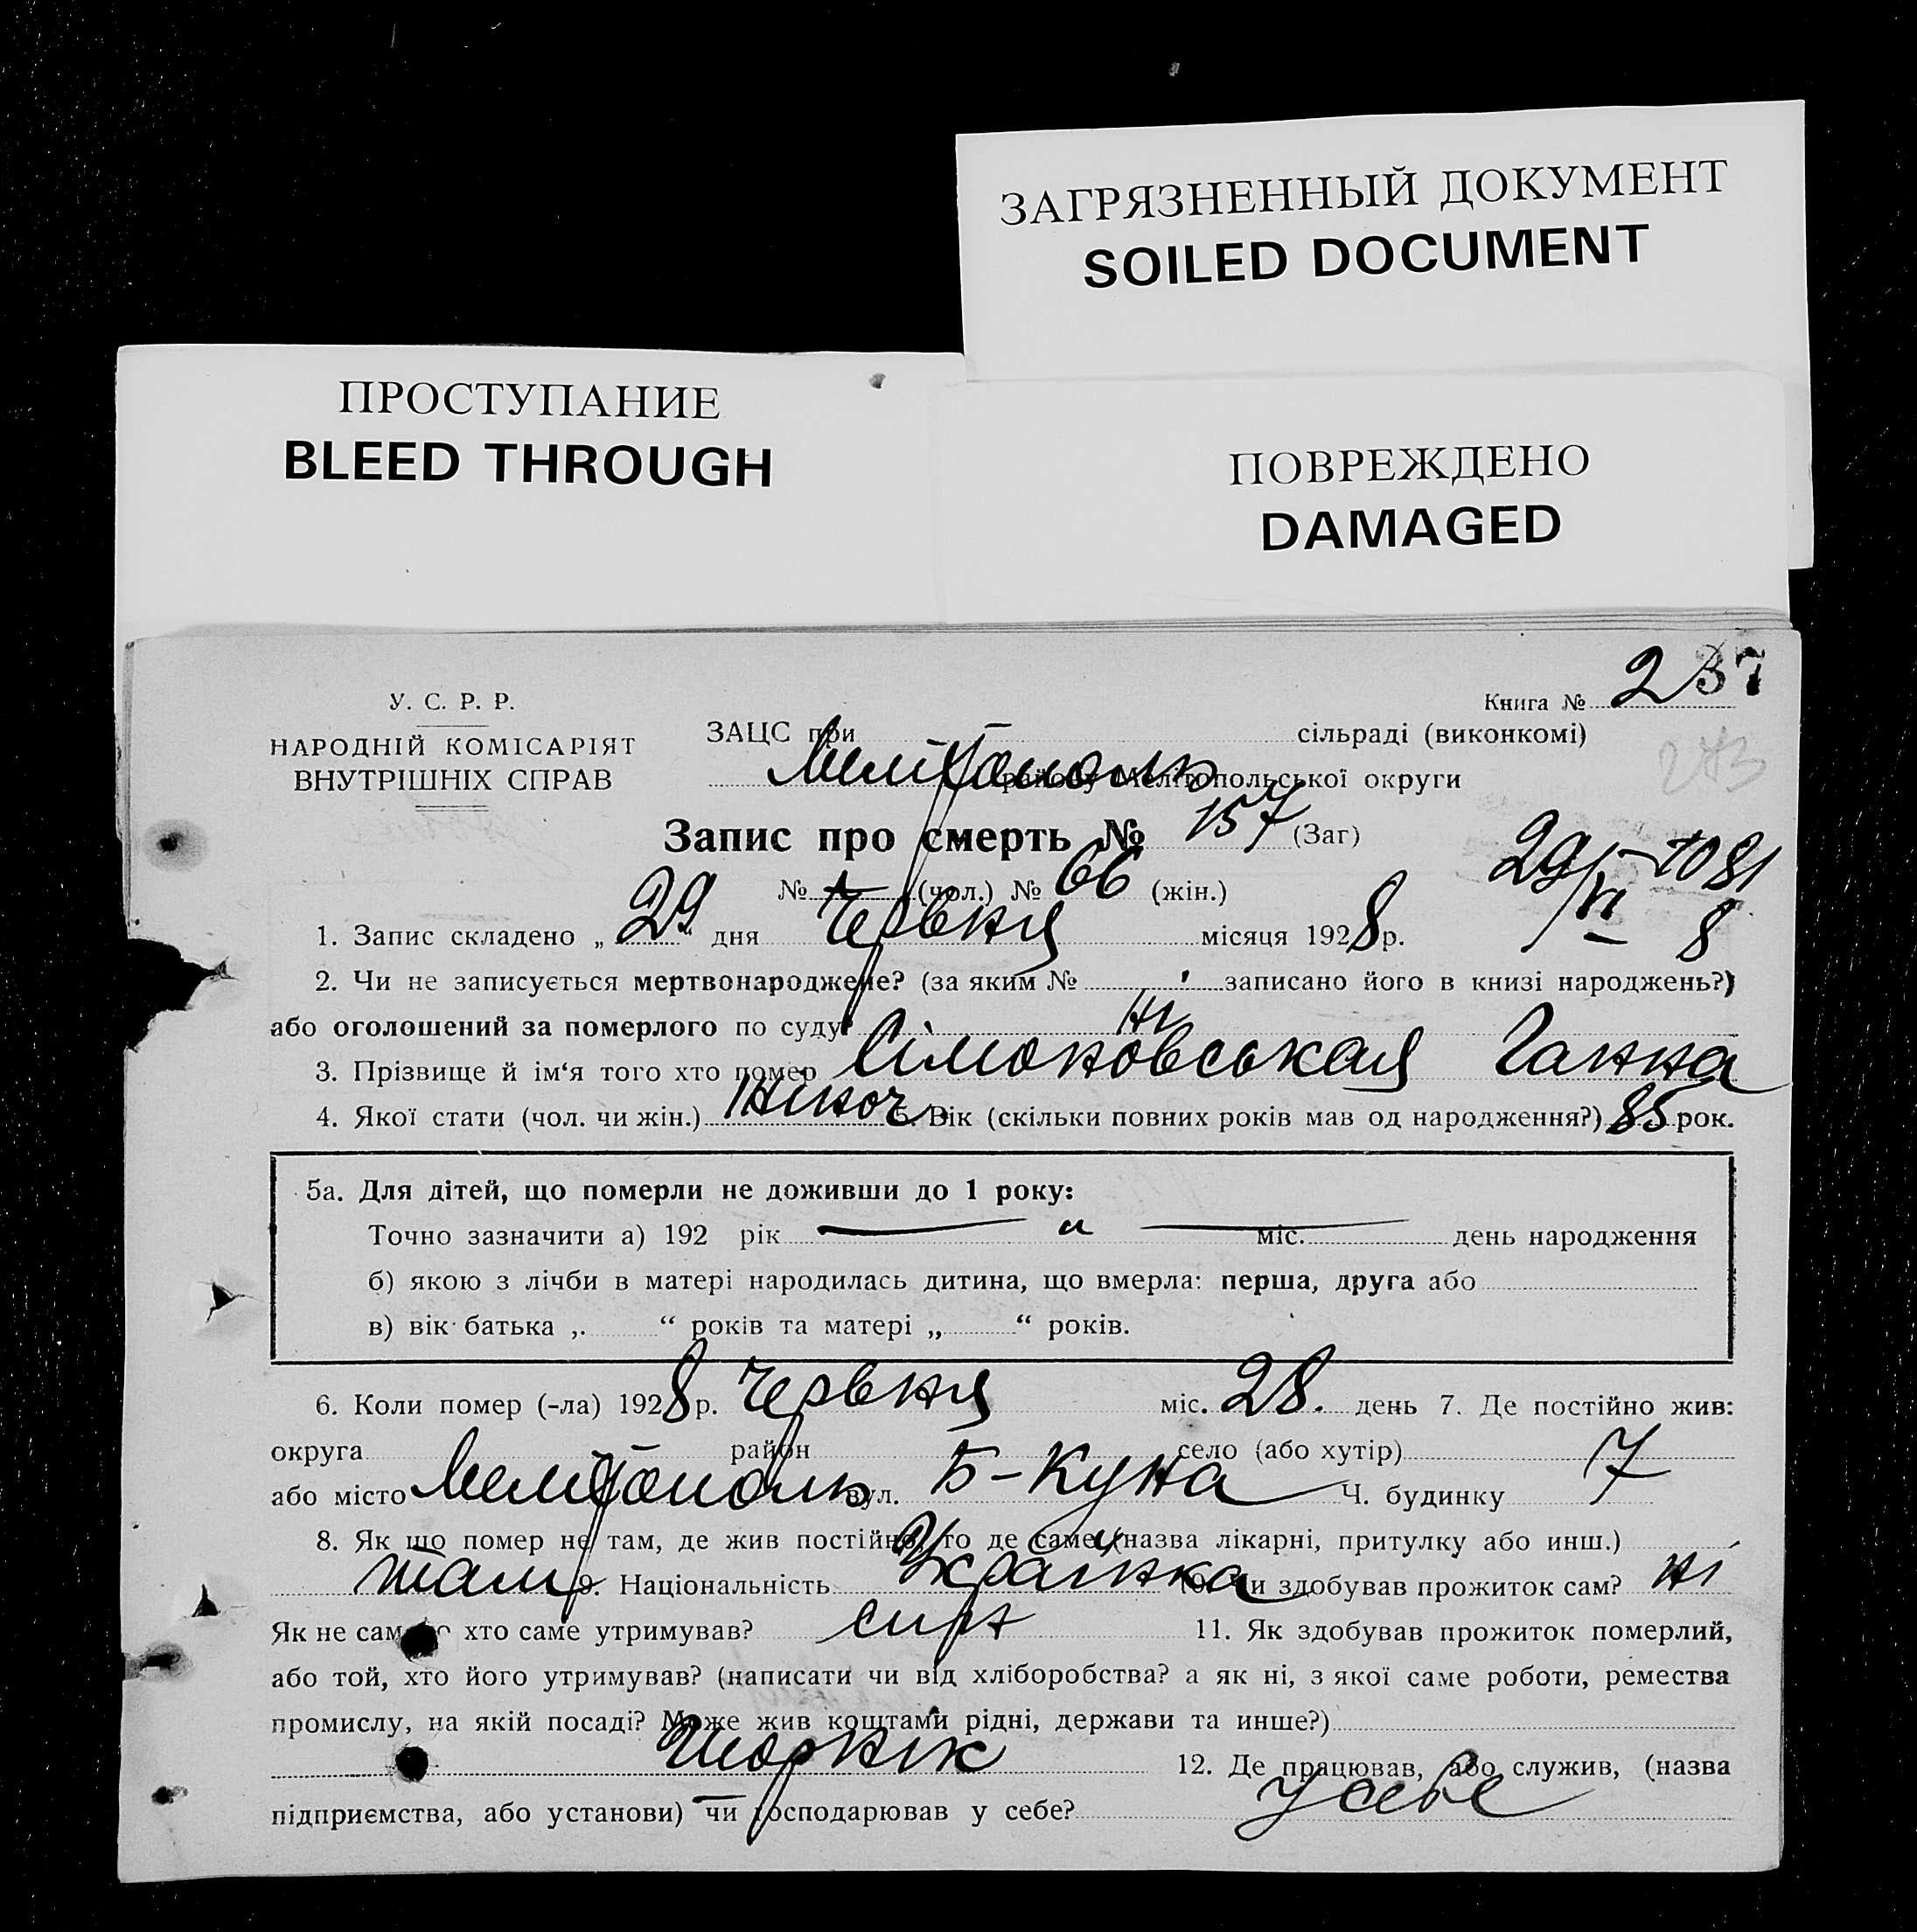 ЗАГРЯЗНЕННЫЙ ДОКУМЕНТ
SOILED DOCUMENT
ПРОСТУПАНИЕ
BLEED THROUGH
ПОВРЕЖДЕНО
DAMAGED
У. С. Р. Р.
НАРОДНІЙ КОМІСАРІЯТ
ВНУТРІШНІХ СПРАВ
Книга № 2 37
ЗАЦС при сільраді (виконкомі)
Мелітополь району Мелітопольської округи
273
Запис про смерть № 157 (Заг)
№ (чол.) № 66 (жін.)
29/VI 1081
8
1. Запис складено „ 29 “ дня Червня місяця 1928 р.
2. Чи не записується мертвонароджене? (за яким № записано його в книзі народжень?)
або оголошений за померлого по суду? Ні
3. Прізвище й ім‘я того хто помер Сімоновськая Ганна
4. Якої стати (чол. чи жін.) Жіноч. 5. Вік (скільки повних років мав од народження?) 85 рок.
5а. Для дітей, що померли не доживши до 1 року:
Точно зазначити а) 192 рік міс. день народження
б) якою з лічби в матері народилась дитина, що вмерла: перша, друга або
в) вік батька „ “ років та матері „ “ років.
6. Коли помер (-ла) 1928 р. Червня міс. 28. день 7. Де постійно жив:
округа район село (або хутір)
або місто Мелітополь вул. Б-Куна Ч. будинку 7
8. Як що помер не там, де жив постійно, то де саме (назва лікарні, притулку або инш.)
там 9. Національність Українка 10. Чи здобував прожиток сам? ні
Як не сам, то хто саме утримував? син 11. Як здобував прожиток померлий,
або той, хто його утримував? (написати чи від хліборобства? а як ні, з якої саме роботи, ремества
промислу, на якій посаді? Може жив коштами рідні, держави та инше?)
Шорнік 12. Де працював, або служив, (назва
підприємства, або установи) чи господарював у себе? У себе